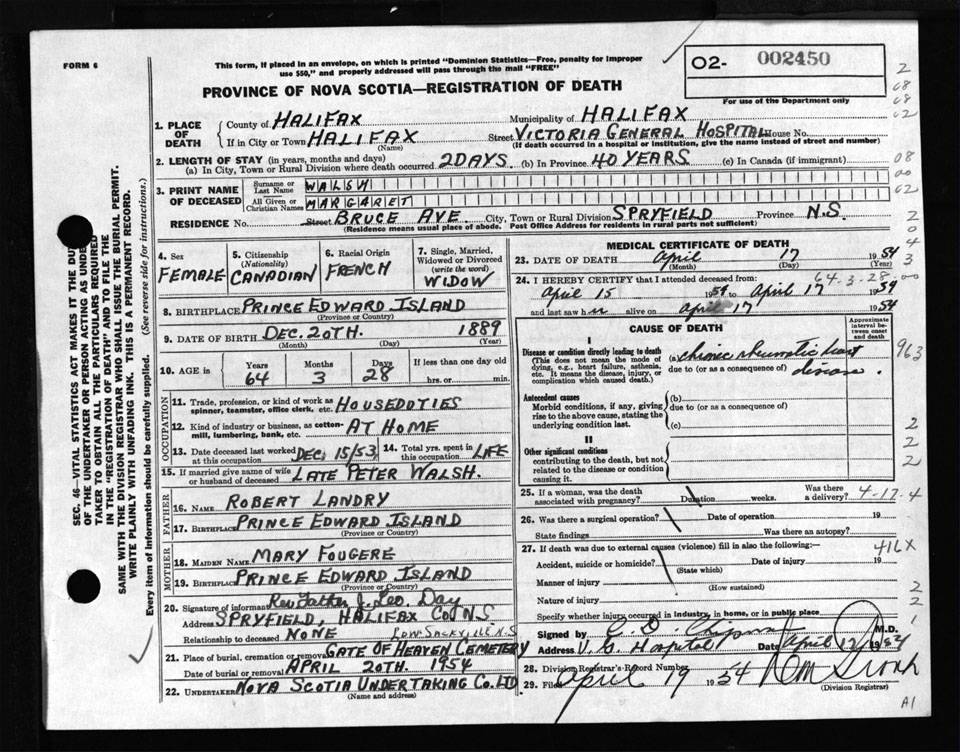 FORM 6
This form, if placed in an envelope, on which is printed "Dominion Statistics—Free, penalty for improper
use $50," and properly addressed will pass through the mail "FREE"
O2- 002450
For use of the Department only
PROVINCE OF NOVA SCOTIA—REGISTRATION OF DEATH
1. PLACE OF DEATH
County of HALIFAX Municipality of HALIFAX
If in City or Town HALIFAX Street VICTORIA GENERAL HOSPITAL House No.
(Name) (If death occurred in a hospital or institution, give the name instead of street and number)
2. LENGTH OF STAY (in years, months and days)
(a) In City, Town or Rural Division where death occurred 2 DAYS. (b) In Province 40 YEARS (c) In Canada (if immigrant)
3. PRINT NAME OF DECEASED
Surname or Last Name WALSH
All Given or Christian Names MARGARET
RESIDENCE No. Street BRUCE AVE City, Town or Rural Division SPRYFIELD Province N.S.
(Residence means usual place of abode. Post Office Address for residents in rural parts not sufficient)
4. Sex FEMALE
5. Citizenship (Nationality) CANADIAN
6. Racial Origin FRENCH
7. Single, Married, Widowed or Divorced (write the word) WIDOW
8. BIRTHPLACE PRINCE EDWARD ISLAND
(Province or Country)
9. DATE OF BIRTH DEC. 20TH. 1889
(Month) (Day) (Year)
10. AGE in Years 64 Months 3 Days 28 If less than one day old
hrs. or min.
OCCUPATION
11. Trade, profession, or kind of work as spinner, teamster, office clerk, etc. HOUSEDUTIES
12. Kind of industry or business, as cotton-mill, lumbering, bank, etc. AT HOME
13. Date deceased last worked at this occupation DEC, 15/53 14. Total yrs. spent in this occupation LIFE
15. If married give name of wife or husband of deceased LATE PETER WALSH.
FATHER
16. NAME ROBERT LANDRY
17. BIRTHPLACE PRINCE EDWARD ISLAND
(Province or Country)
MOTHER
18. MAIDEN NAME MARY FOUGERE
19. BIRTHPLACE PRINCE EDWARD ISLAND
(Province or Country)
20. Signature of informant Rev Father J. Leo. Day
Address SPRYFIELD, HALIFAX CO. N.S.
Relationship to deceased NONE LOW. SACKVILLE N.S
21. Place of burial, cremation or removal GATE OF HEAVEN CEMETERY
Date of burial or removal APRIL 20TH. 1954
22. UNDERTAKER NOVA SCOTIA UNDERTAKING CO. LTD
(Name and address)
MEDICAL CERTIFICATE OF DEATH
23. DATE OF DEATH April 17 1954
(Month) (Day) (Year)
64-3-28
24. I HEREBY CERTIFY that I attended deceased from:
April 15 1954 to April 17 1954
and last saw h alive on April 17 1954
CAUSE OF DEATH
Approximate interval between onset and death
I
Disease or condition directly leading to death
(This does not mean the mode of dying, e.g., heart failure, asthenia, etc. It means the disease, injury, or complication which caused death.)
(a) chronic rheumatic heart disease.
due to (or as a consequence of)
Antecedent causes
Morbid conditions, if any, giving rise to the above cause, stating the underlying condition last.
(b)
due to (or as a consequence of)
(c)
II
Other significant conditions
contributing to the death, but not related to the disease or condition causing it.
25. If a woman, was the death associated with pregnancy? Duration weeks. Was there a delivery? 4-17-4
26. Was there a surgical operation? Date of operation 19
State findings Was there an autopsy?
27. If death was due to external causes (violence) fill in also the following:—
416X
Accident, suicide or homicide? Date of injury 19
(State which)
Manner of injury
(How sustained)
Nature of injury
Specify whether injury occurred in industry, in home, or in public place
Signed by M.D.
Address V. G. Hospital Date April 17 1954
28. Division Registrar's Record Number
29. Filed April 19 1954
(Division Registrar)
963
A1
SEC. 46—VITAL STATISTICS ACT MAKES IT THE DUTY
OF THE UNDERTAKER OR PERSON ACTING AS UNDER-
TAKER TO OBTAIN ALL THE PARTICULARS REQUIRED
IN THE "REGISTRATION OF DEATH" AND TO FILE THE
SAME WITH THE DIVISION REGISTRAR WHO SHALL ISSUE THE BURIAL PERMIT.
WRITE PLAINLY WITH UNFADING INK. THIS IS A PERMANENT RECORD.
Every item of information should be carefully supplied. (See reverse side for instructions.)